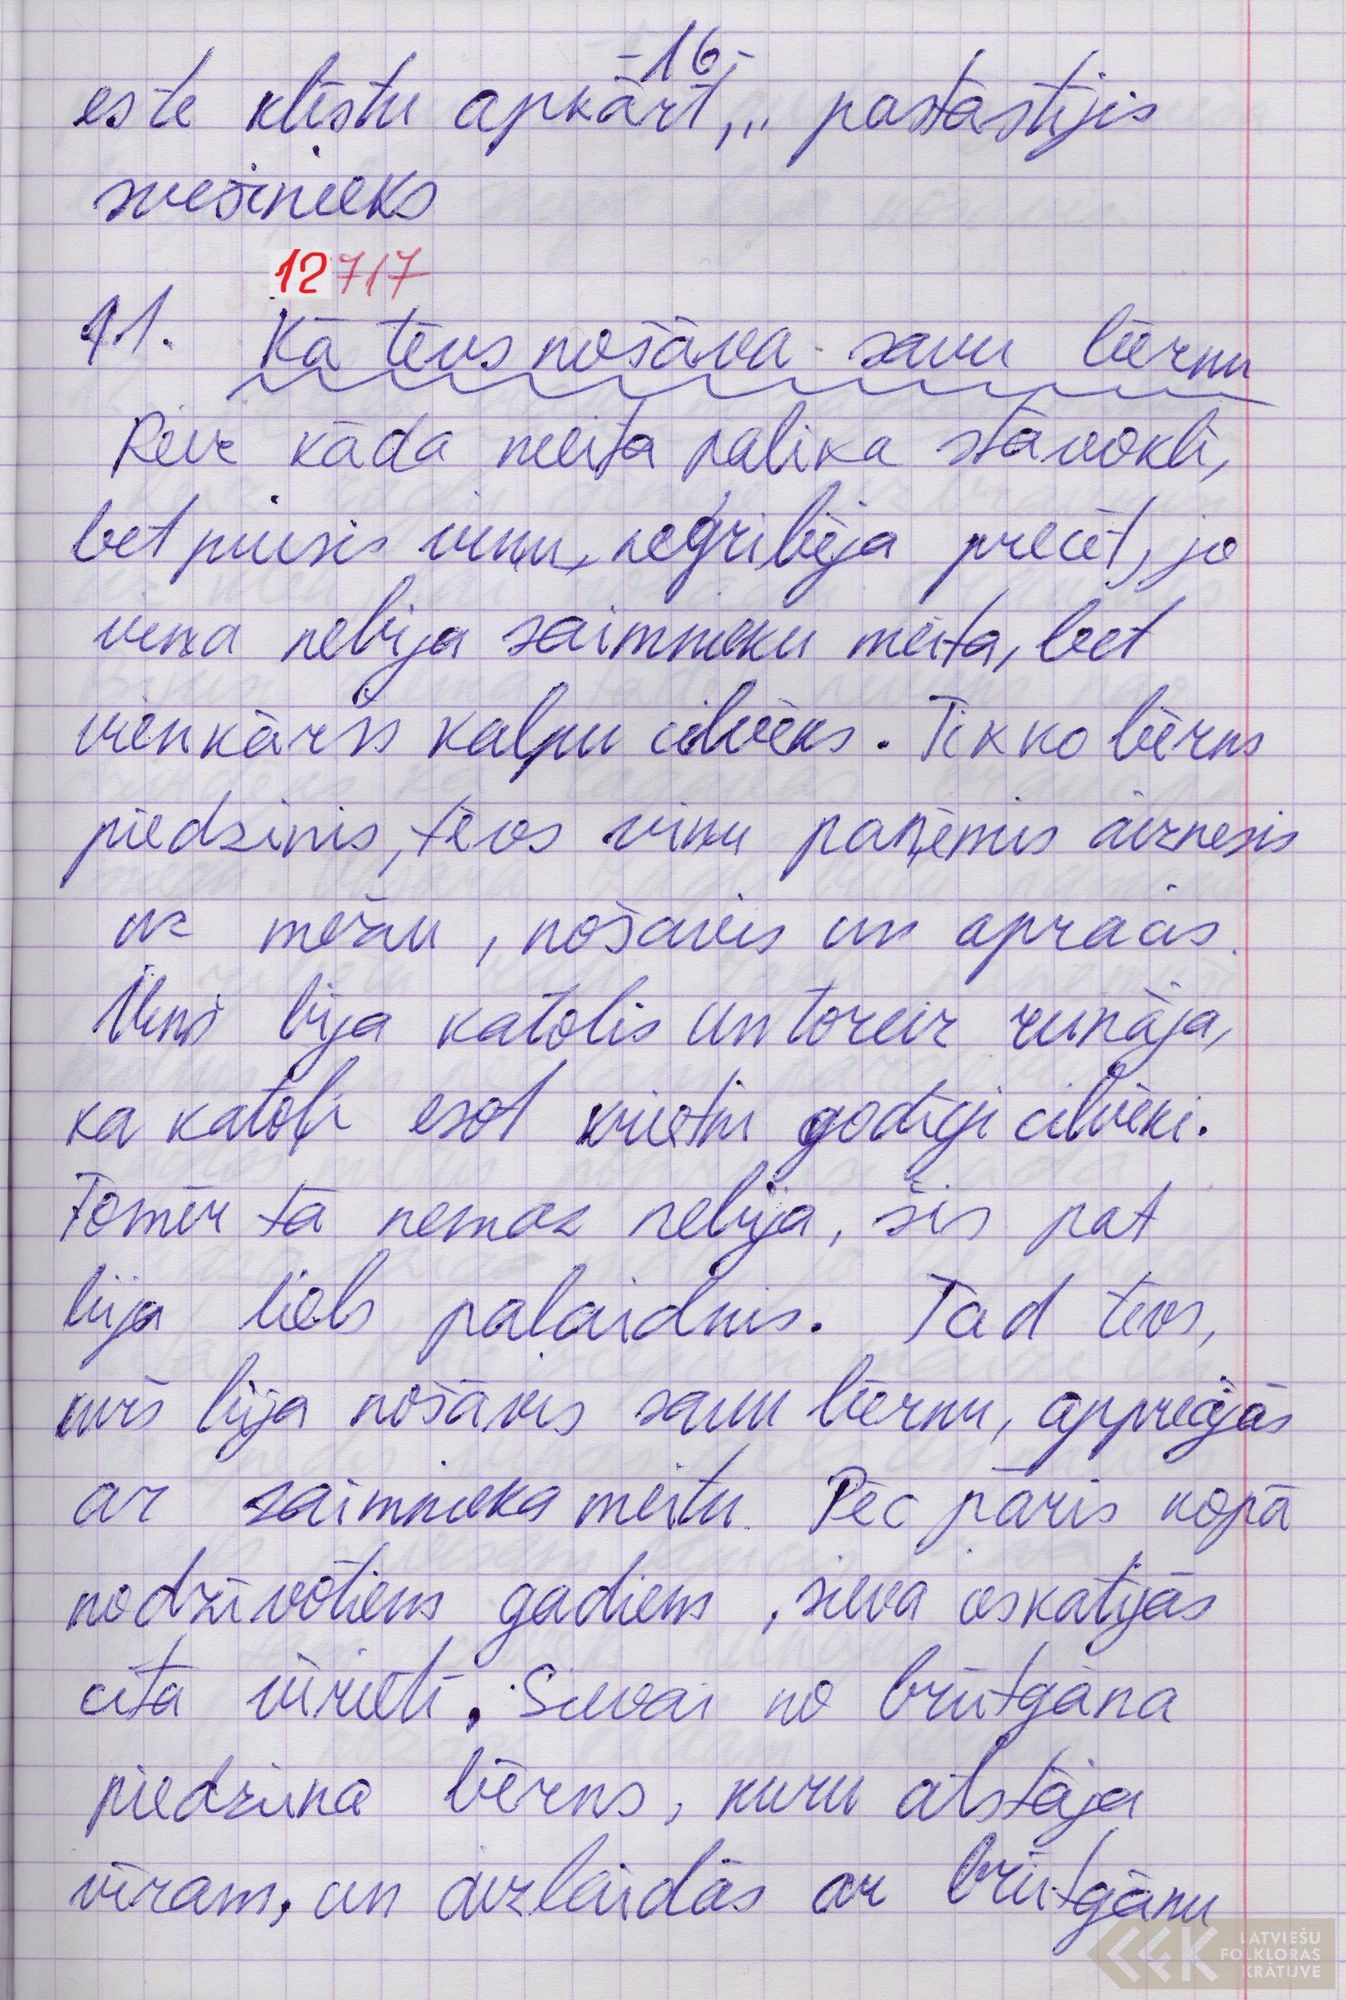 -16-
este klīstu apkārt,„ pastāstījis
svešinieks
12717
11. Kā tēvs nošāva savu bērnu
Reiz kāda meita palika stāvoklī,
bet puisis viņu negribēja precēt, jo
viņa nebija saimnieku meita, bet
vienkāršs kalpu cilvēks. Tikko bērns
piedzimis, tēvs viņu paņēmis aiznesis
uz mežu, nošāvis un apracis.
Viņš bija katolis un toreiz runāja,
ka katoļi esot krietni godīgi cilvēki.
Tomēr tā nemaz nebija, šis pat
bija liels palaidnis. Tad tēvs,
kurš bija nošāvis savu bērnu, apprecējās
ar saimnieka meitu. Pēc pāris kopā
nodzīvotiem gadiem, sieva ieskatījās
citā vīrietī. Sievai no brūtgāna
piedzima bērns, kuru atstāja
vīram, un aizlaidās ar brūtgānu
LATVIEŠU
FOLKLORAS
KRĀTUVE